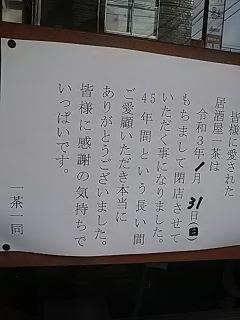 皆様に愛された
居酒屋一茶は
令和3年1月31日(日)
もちまして閉店させて
いただく事になりました。
45年間という長い間
ご愛顧いただき本当に
ありがとうございました。
皆様に感謝の気持ちで
いっぱいです。
一茶一同